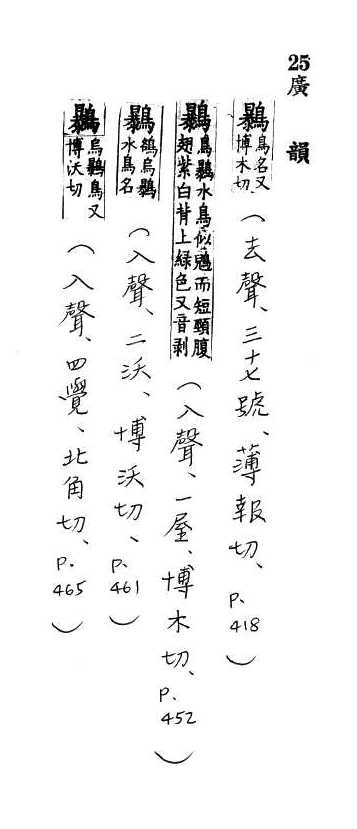 25廣韻
鸔鳥名又博木切(去聲、三十七號、薄報切、P.418)
鸔鳥鸔水鳥似鶂而短頸腹翅紫白背上綠色又音剥(入聲、一屋、博木切、P.452)
鸔鵅烏鸔水鳥名(入聲、二沃、博沃切、P.461)
鸔烏鸔鳥又博沃切(入聲、四覺、北角切、P.465)